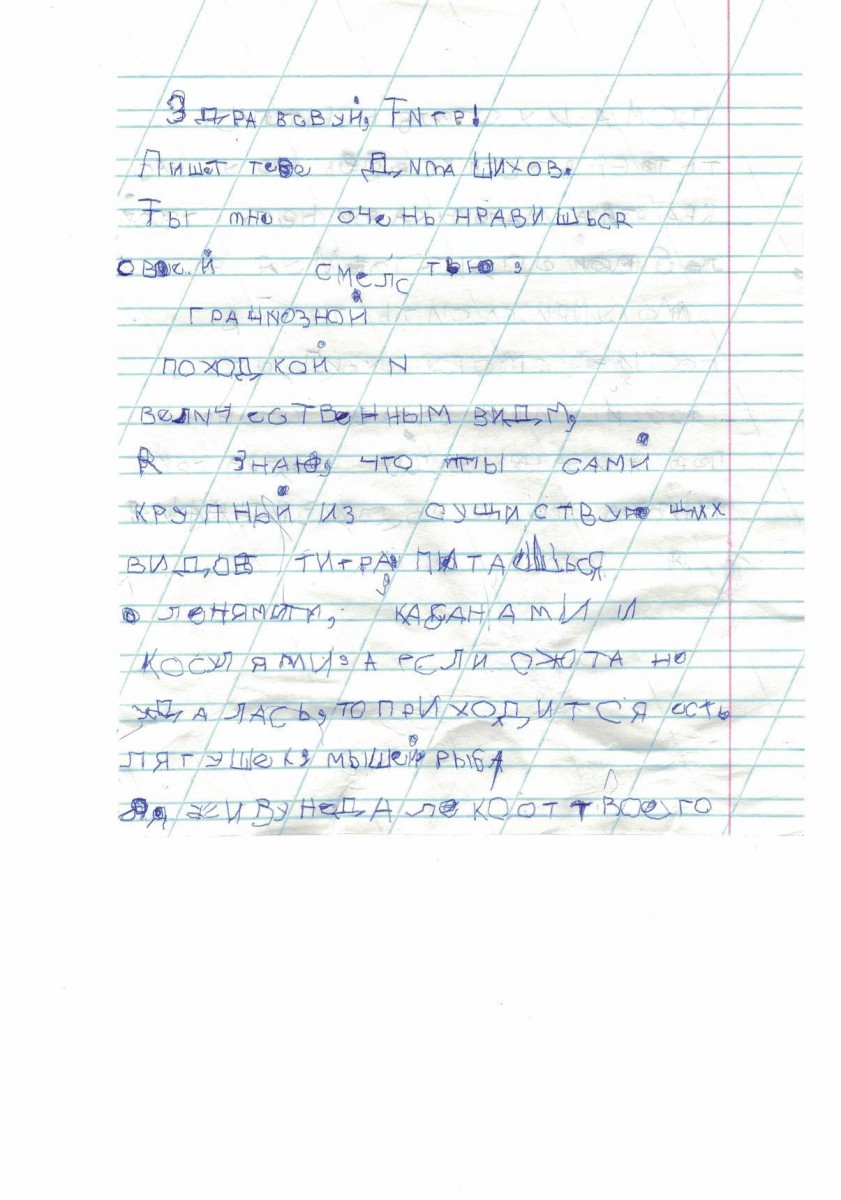 Здравсвуй, Тигр!
Пишет тебе Дима Шихов.
Ты мне очень нравишься
своей смелостью,
грациозной
походкой и
величественным видм,
Я знаю, что ты сами
крупный из сущиствующих
видов тигра, питаешься
оленями, кабанами и
косулями, а если охота не
удалась, то приходится есть
лягушек, мышей, рыба
Я живу недалеко от твоего